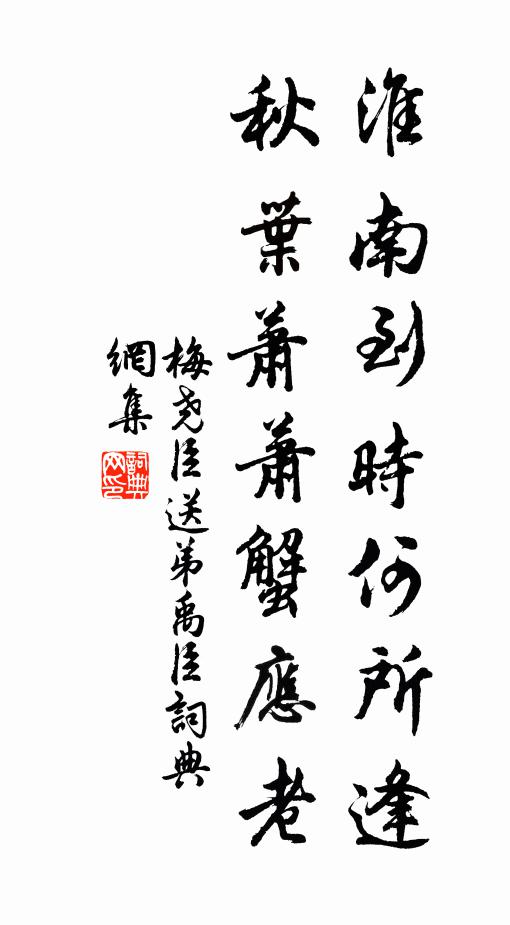 淮南到時何所逢
秋葉蕭蕭蟹應老
梅堯臣送弟禹臣詞典
網集
詞典
网印